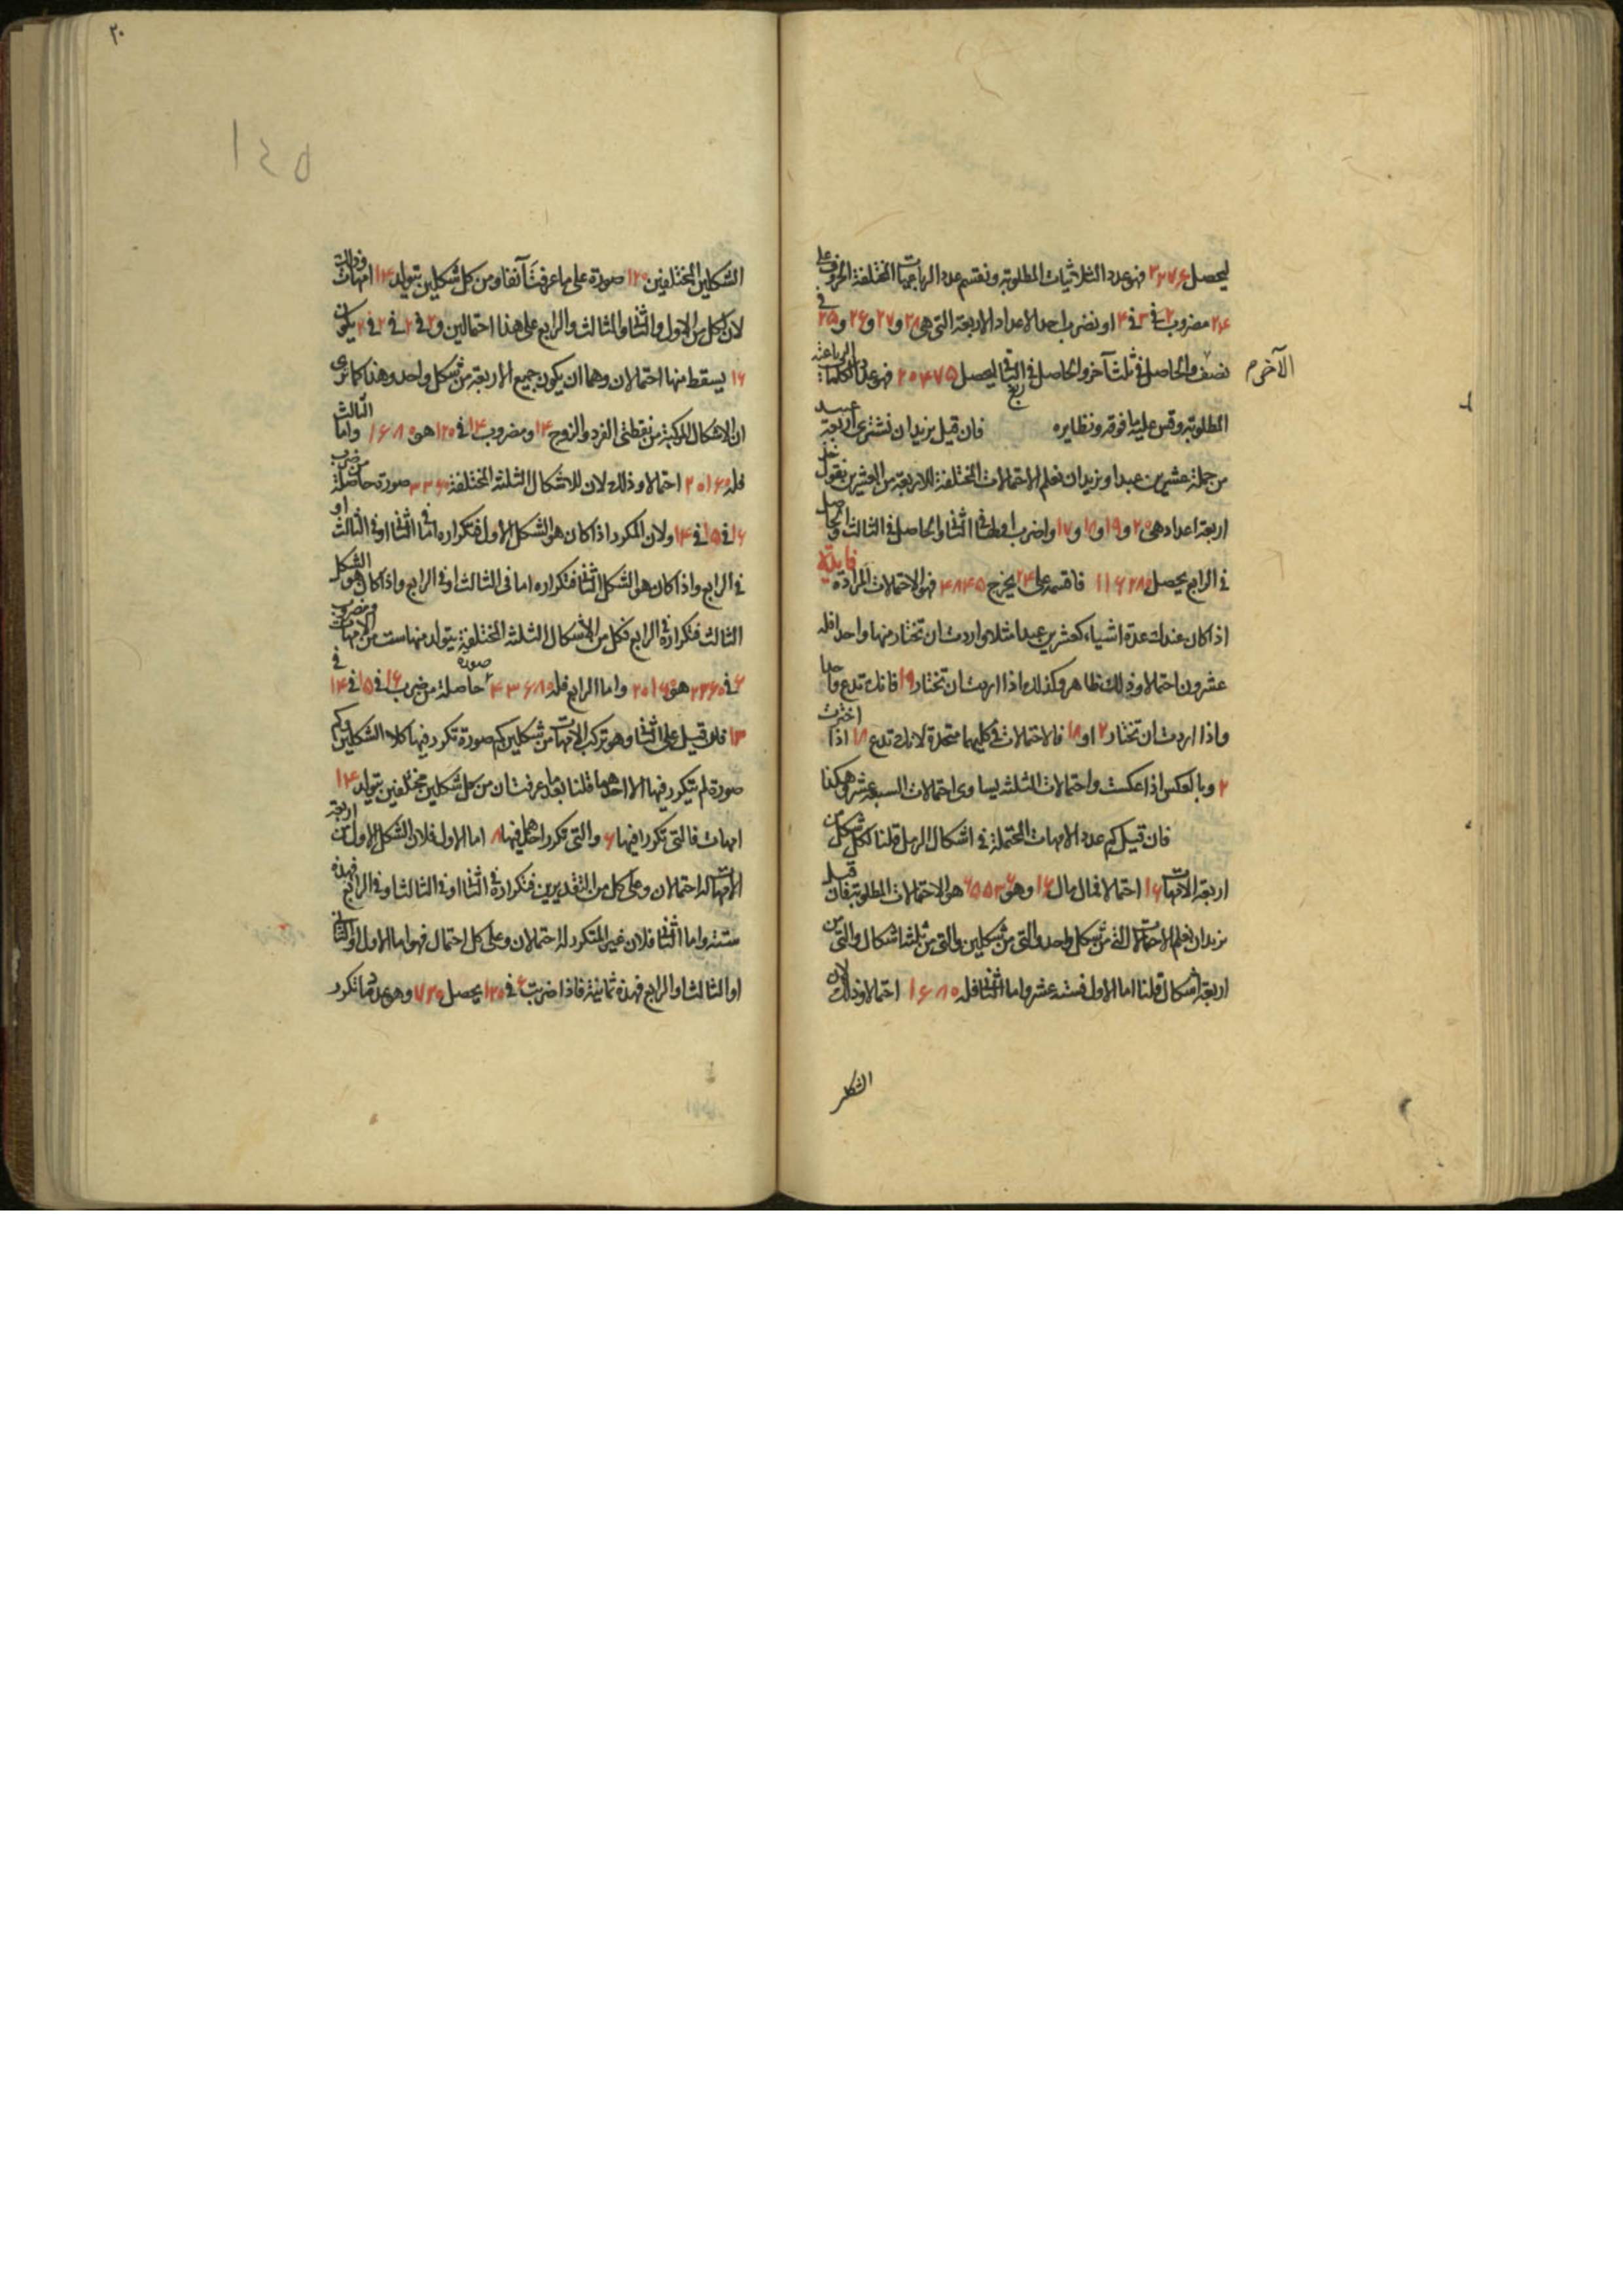 ليحصل ٣٢٧٦ فهو عدد الثلاثيات المطلوبة ونقسم عدد الرباعيات المختلفة الحروف على
٢٤ مضروب ٢ في ٣ في ٤ او نضرب احد الاعداد الاربعة التي هي ٢٨ و ٢٧ و ٢٦ و ٢٥ في
نصف الآخر والحاصل في ثلث آخر والحاصل في ربع الباقي ليحصل ٢٠٤٧٥ فهو عدد الكلمات الرباعية
المطلوبة وقس عليه ما فوقه ونظايره فان قيل نريد ان نشترى اربعة عبيد
من جملة عشرين عبدا ونريد ان نعلم الاحتمالات المختلفة للاربعة من العشرين نقول خذ
اربعة اعداد هى ٢٠ و ١٩ و ١٨ و ١٧ واضرب اولها في الثاني والحاصل في الثالث والحاصل
في الرابع يحصل ١١٦٢٨٠ فاقسمه على ٢٤ يخرج ٤٨٤٥ فهو الاحتمالات المرادة فايدة
اذا كان عندك عدة اشياء كعشرين عبدا مثلا واردت ان تختار منها واحدا فله
عشرون احتمالا وذلك ظاهر وكذلك اذا اردت ان تختار ١٩ فانك تدع واحدا
واذا اردت ان تختار ٢ او ١٨ فالاحتمالات في كليهما متحدة لانك تدع ١٨ اذا اخترت
٢ وبالعكس اذا عكست واحتمالات الثلثة يساوى احتمالات السبعة عشر وهكذا
فان قيل كم عدد الامهات المحتملة في اشكال الرمل قلنا لكل شكل من
اربعة الامهات ١٦ احتمالا فمال مال ١٦ وهو ٦٥٥٣٦ هو الاحتمالات المطلوبة فان قيل
نريد ان نعلم الاحتمالات التي من شكل واحد والتي من شكلين والتي من ثلثة اشكال والتي من
اربعة اشكال قلنا اما الاول فستة عشر واما الثاني فله ١٦٨٠ احتمالا وذلك لان
الشكلين
الشكلين المختلفين ١٢٠ صورة على ما عرفت آنفا ومن كل شكلين يتولد ١٤ امهات وذلك
لان لكل من الاول والثاني والثالث والرابع على هذا احتمالين و ٢ في ٢ في ٢ في ٢ يكون
١٦ يسقط منها احتمالان وهما ان يكون جميع الاربعة من شكل واحد وهذا كما ترى
ان الاشكال المركبة من نقطتي الفرد والزوج ١٤ ومضروب ١٤ في ١٢٠ هو ١٦٨٠ واما الثالث
فله ٢٠١٦٠ احتمالا وذلك لان للاشكال الثلثة المختلفة ٣٣٦٠ صورة حاصلة من ضرب
١٦ في ١٥ في ١٤ ولان المكرر اذا كان هو الشكل الاول فتكراره اما في الثاني او في الثالث او
في الرابع واذا كان هو الشكل الثاني فتكراره اما فى الثالث او في الرابع واذا كان هو الشكل
الثالث فتكراره في الرابع فكل من الاشكال الثلثة المختلفة يتولد منها ست من الامهات ومضروب
٦ في ٣٣٦٠ هو ٢٠١٦٠ واما الرابع فله ٤٣٦٨٠ صورة حاصلة من ضرب ١٦ في ١٥ في ١٤ في
١٣ فان قيل على الثاني وهو تركب الامهات من شكلين كم صورة تكرر فيها كلا الشكلين وكم
صورة لم يتكرر فيها الا احدهما قلنا بعد ما عرفت ان من كل شكلين مختلفين يتولد ١٤
امهات فالتي تكررا فيها ٦ والتي تكرر احدهما فيها ٨ اما الاول فلان الشكل الاول من اربعة
الامهات له احتمالان وعلى كل من التقديرين فتكراره في الثاني او في الثالث او في الرابع فهذه
ستة واما الثاني فلان غير المتكرر له احتمالان وعلى كل احتمال فهو اما الاول او الثاني
او الثالث او الرابع فهذه ثمانية فاذا ضربت ٦ في ١٢٠ يحصل ٧٢٠ وهو عدد ما تكرر